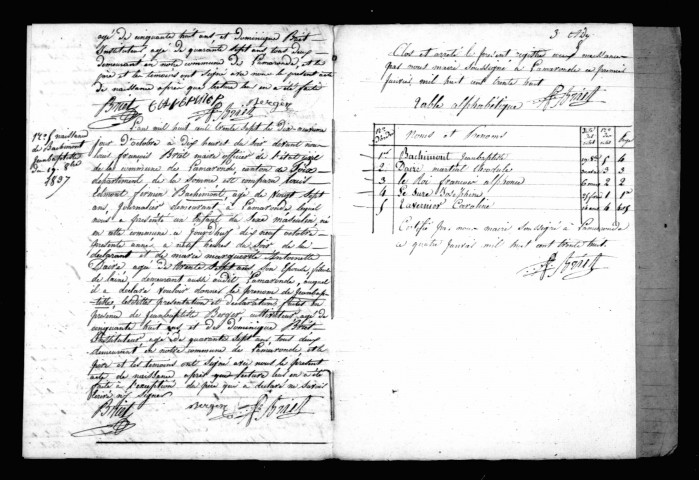 agé de cinquante huit ans, et Dominique Bréit
Instituteur, agé de quarante sept ans tous deux
demeurant en notre commune de Lamaronde, et les
père et les temoins ont signé avec nous le present acte
de naissance après que lecture leur en a été faite
Bréit Berger F Bréit
N° 5 naissance
de Bachimont
Jeanbaptiste
Du 19 8bre
1837
L'an mil huit cent trente sept le dix neuvieme
jour d'octobre à dix heures du soir devant nous
françois Bréit maire officier de l'état civil
de la commune de Lamaronde, canton de Poix
département de la Somme est comparu Louis
firmin Bachimont, agé de vingt sept
ans, journalier demeurant à Lamaronde lequel
nous a presenté un enfant du sexe masculin, né
en cette commune aujourd'huy dix neuf octobre
presente année a neuf heures du soir de lui
declarant et de marie marguerite antoinette
agée de trente sept ans son épouse, fileuse
de laine, demeurant aussi audit Lamaronde, auquel
il a declaré vouloir donner le prenom de Jeanbap-
tiste, lesdites presentation et declaration faites en
presence de Jeanbaptiste Berger, cultivateur, agé de
cinquante huit ans et de Dominique Bréit
Instituteur agé de quarante sept ans tous deux
demeurant en notre commune de Lamaronde, et les
père et les temoins ont signé avec nous le present
acte de naissance après que lecture leur en a été
faite à l'exception du père qui a declaré ne savoir
écrire ni signer
Bréit Berger F Bréit
Clos et arreté le présent registre
par nous maire soussigné à Lamaronde le premier
janvier mil huit cent trente huit
F Bréit
Table alphabetique
Noms et Prenoms
1er Bachimont Jeanbaptiste 5 4
2 martial theodule 3 3
3 Le Roi françois alphonse 2 2
4 Josephine 1 1er
5 Tavernier Caroline 4
Certifié par nous maire soussigné à Lamaronde
ce quatre janvier mil huit cent trente huit.
F Bréit